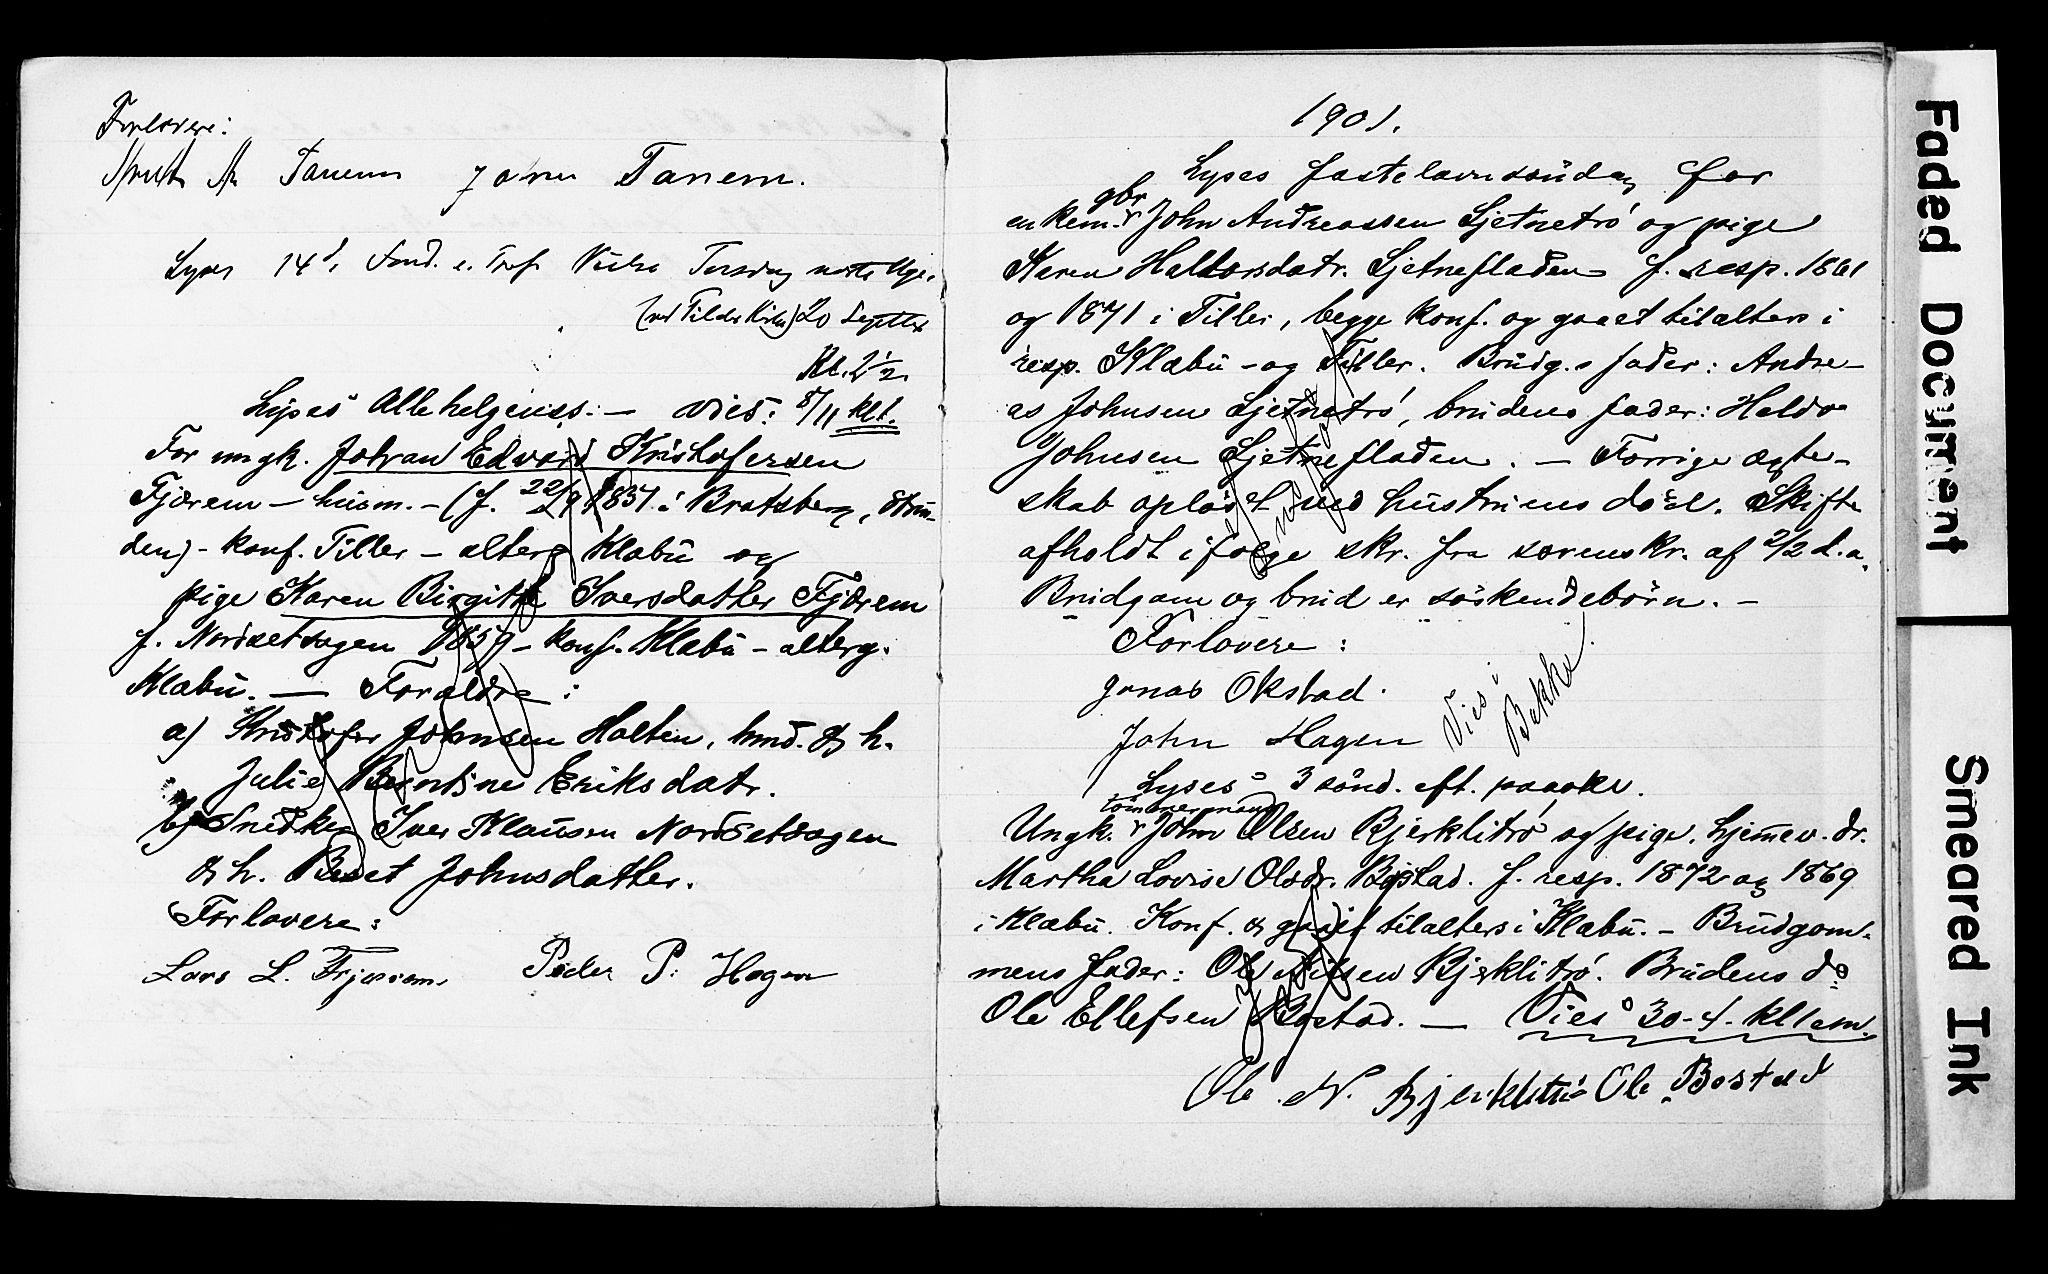 Forlovere:
Tanem John Tanem.
Lyses 14d. Sønd. e. Tref. Vies Torsdag næste Uge.
(ved Tilder Kirke) 20 Septbr
Kl. 2½.
Lyses Allehelgenss. — vies: 8/11 kl 1.
For ungk. Johan Edvard Kristofersen
Fjærem - husm. - (f. 22/9 1857 i Bratsberg, Strin-
den) - konf. Tiller - alterg. Klæbu og
pige Karen Birgitte Iversdatter Fjærem
f. Nordsetsagen 1859 - konf. Klæbu - alterg.
Klæbu. — Forældre:
a) Kristofer Johnsen Halten, hmd. & h.
Julie Berntine Eriksdatr.
b) Snedker Iver Klausen Nordsetsagen
& h. Beret Johnsdatter.
Forlovere:
Lars L. Fjærem Peder P. Hagen
1901.
Lyses fastelavnssøndag for
enkem. gbr John Andreassen Sjetnetrø og pige
Karen Haldorsdatr. Sjetnefladen f. resp. 1861
og 1871 i Tiller, begge konf. og gaaet tilalters i
resp. Klæbu - og Tiller. Brudg.s fader: Andre-
as Johnsen Sjetnetrø, brudens fader: Haldor
Johnsen Sjetnefladen. — Forrige ægte-
skab opløst ved hustruens død. Skifte
afholdt ifølge skr. fra sorenskr. af 2/2 d.a.
Brudgom og brud er søskendebørn. -
Forlovere:
Jonas Okstad.
John Hagen
Vies i
Bekken
Lyses 3 sønd. eft. paaske.
tømmermand
Ungk. John Olsen Bjerklitrø og pige, hjemmev. dr.
Martha Lovise Olsdr. Bostad. f. resp. 1872 og 1869
i Klæbu. Konf. & gaaet tilalters i Klæbu. - Brudgom-
mens fader: Ole Nilsen Bjerklitrø. Brudens do
Ole Ellefsen Bostad. — Vies 30-4. kl 1 em.
Ole N. Bjerklitrø Ole Bostad
Faded Document
Smeared Ink